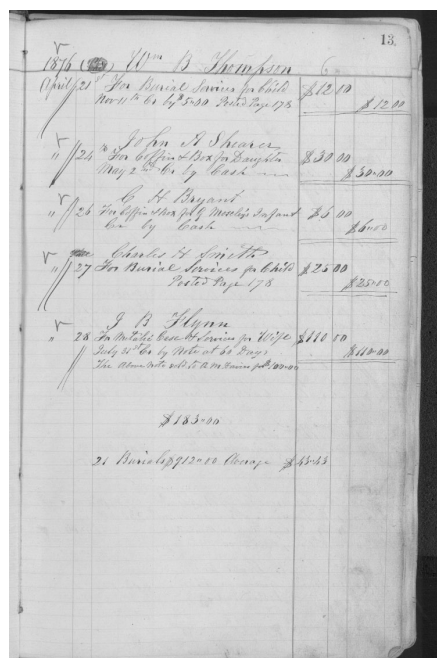 13
1876 Wm B Thompson
April 21st For Burial Services for Child $12 00
Nov 11th Cr by $5.00 Posted Page 178 $12.00
John A Shearer
" 24th For Coffin & Box for Daughter $30 00
May 2nd Cr by Cash $30.00
C H Bryant
" 26 For Coffin & box for J Moseley's Infant $6 00
Cr by Cash $6.00
Charles H Smith
" 27 For Burial Services for Child $25 00
Posted Page 178 $25.00
J B Flynn
" 28 For Metalic Case & Services for Wife $110 00
July 25th Cr by Note at 60 Days $110.00
The Above Note sold to A M for $100.00
$183.00
21 Burials $912.00 Average $43.43